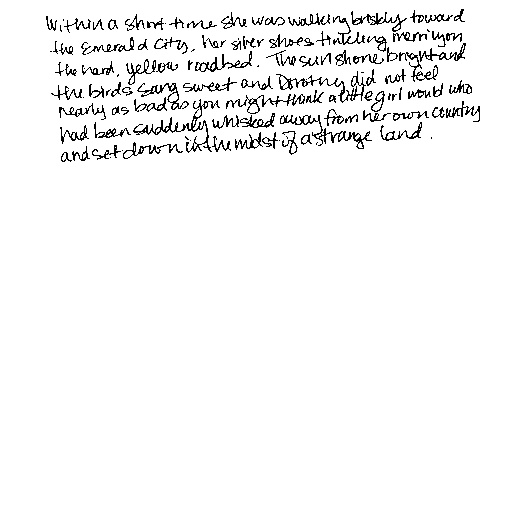 Within a short time she was walking briskly toward
the Emerald City, her silver shoes tinkling merrily on
the hard, yellow roadbed. The sun shone bright and
the birds sang sweet and Dorothy did not feel
nearly as bad as you might think a little girl would who
had been suddenly whisked away from her own country
and set down in the midst of a strange land.